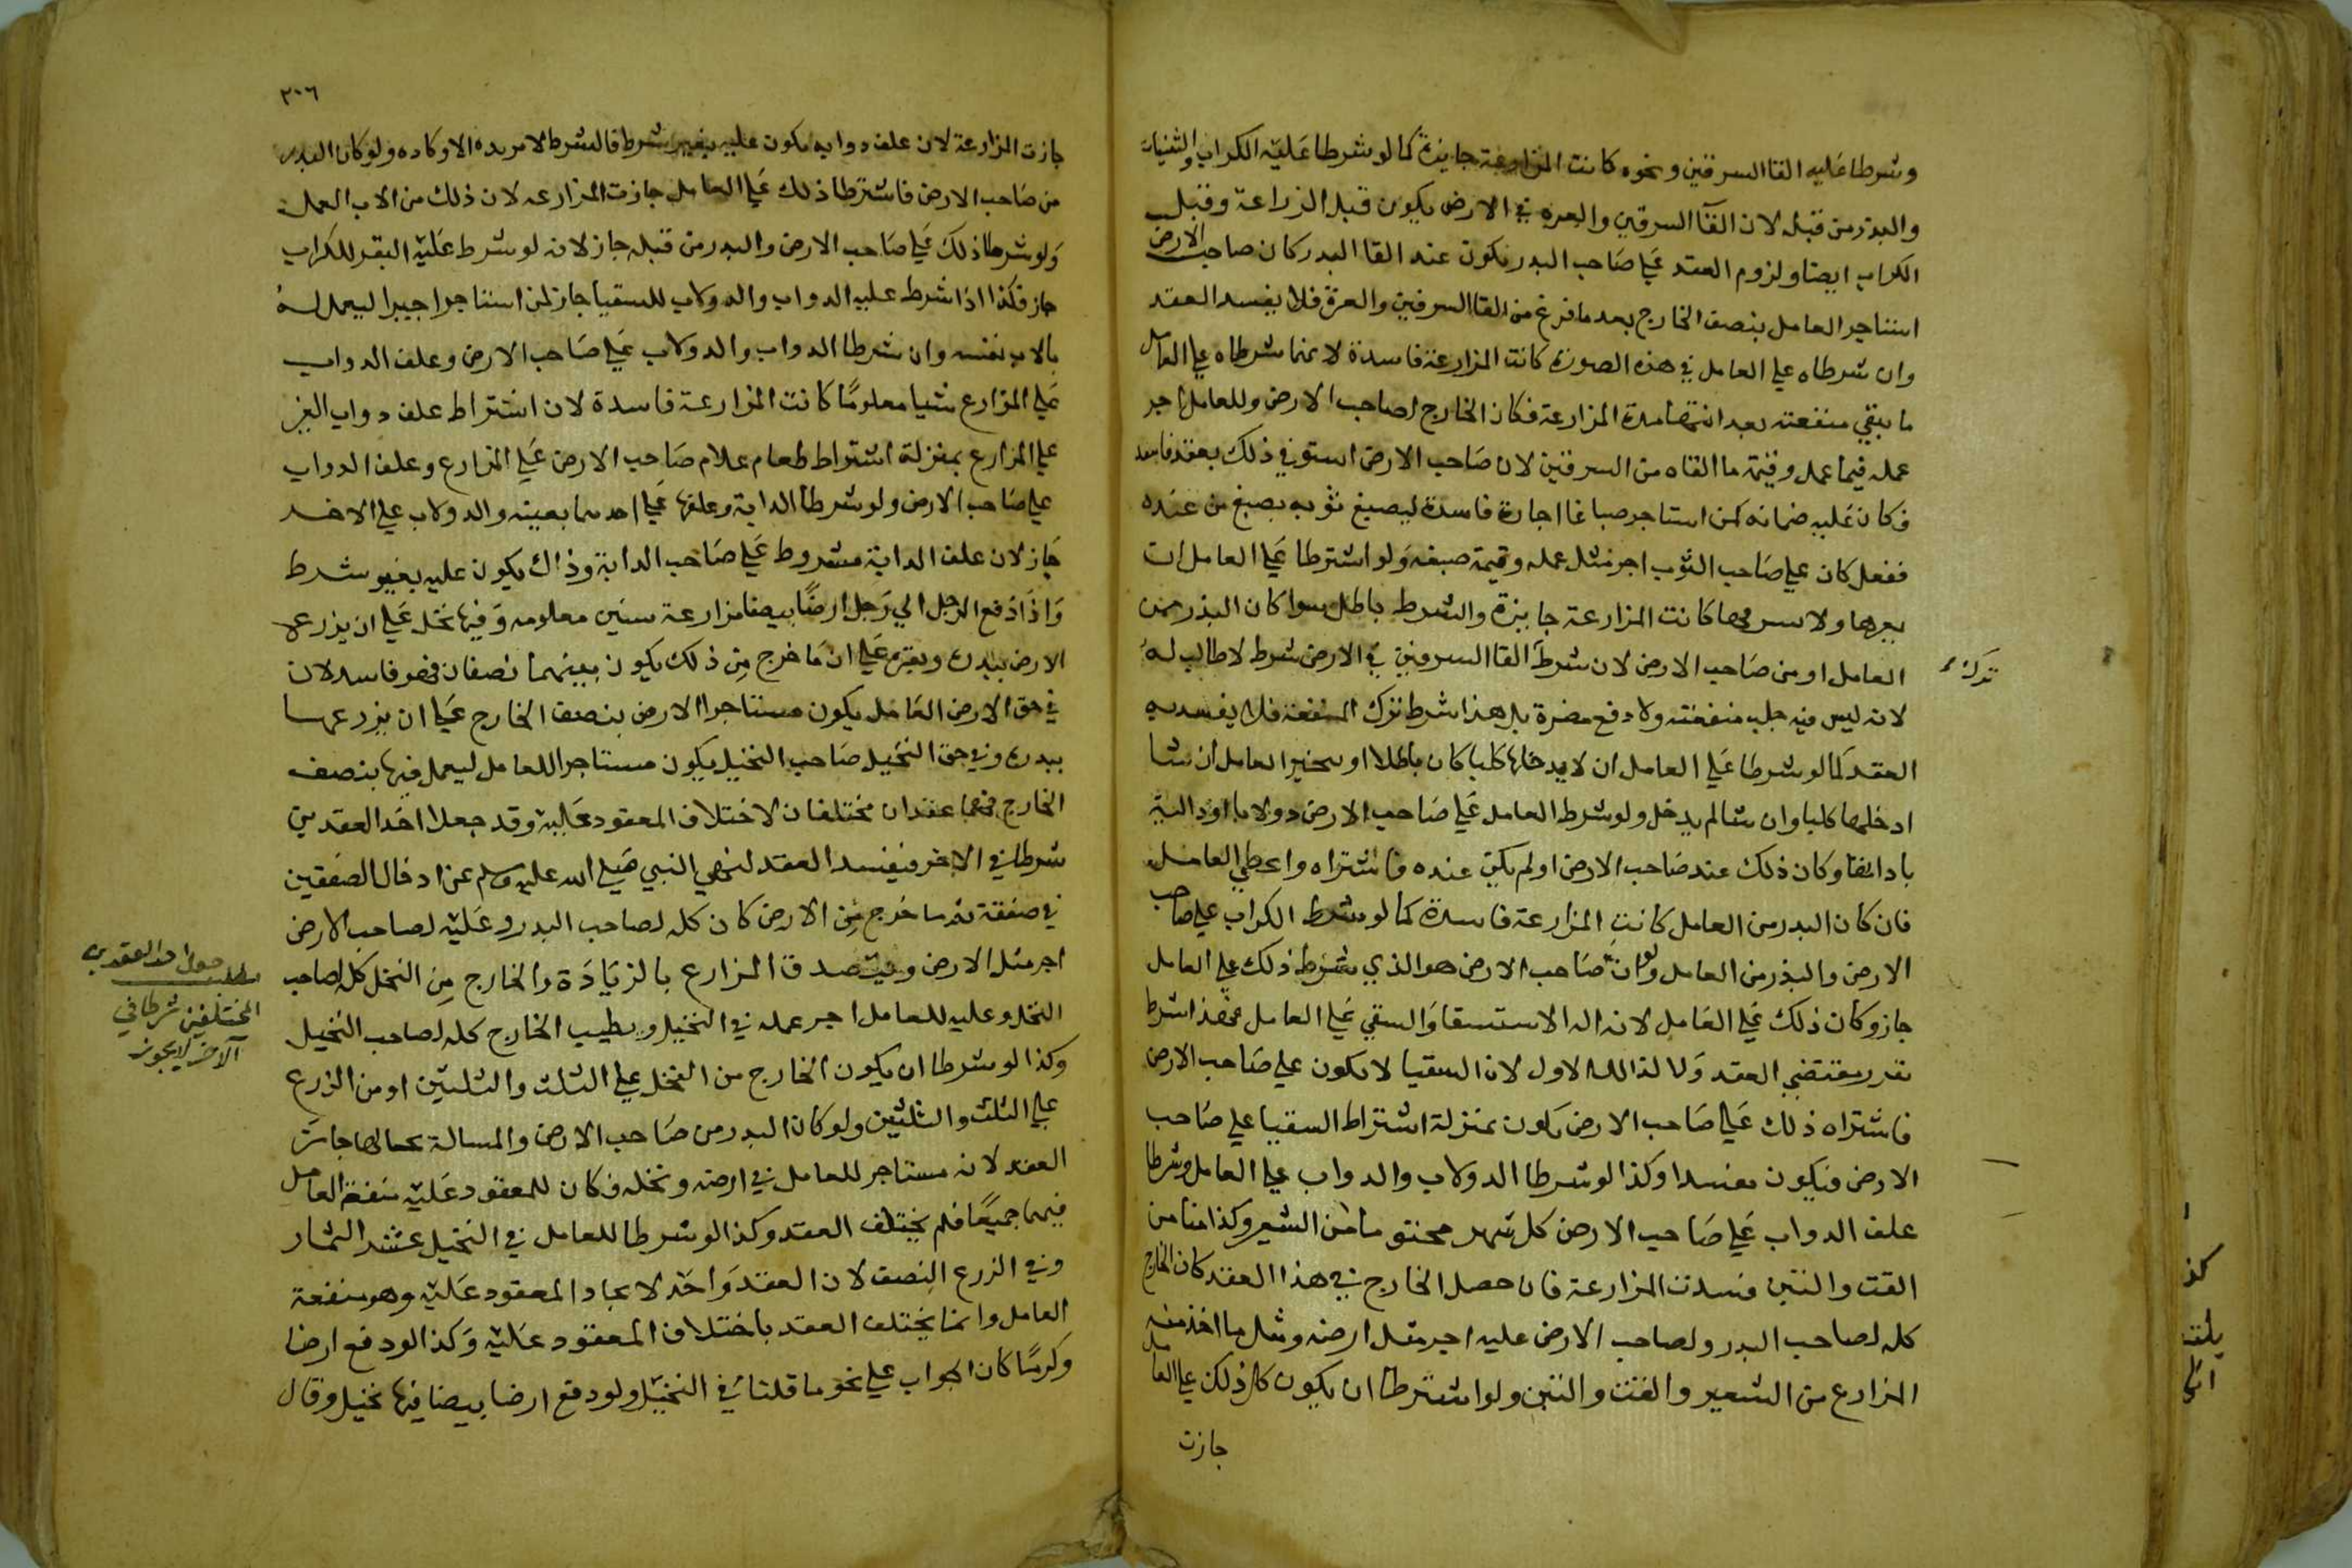 وشرطا عليه القا السرقين ونحوه كانت المزارعة جايزة كما لو شرطا عليه الكراب والثنيان
والبذر من قبله لان القآ السرقين والعره في الارض يكون قبل الزراعة وقبل
الكراب ايضا ولزوم العقد علي صاحب البدر يكون عند القا البدر كان صاحب الارض
استاجر العامل بنصف الخارج بعد ما فرغ من القا السرقين والعرة فلا يفسد العقد
وان شرطاه علي العامل في هذه الصورة كانت المزارعة فاسدة لانهما شرطاه علي العامل
ما يبقي منفعته بعد انتها مدة المزارعة فكان الخارج لصاحب الارض وللعامل اجر
عمله فيما عمل وقيمة ما القاه من السرقين لان صاحب الارض استوفي ذلك بعقد فاسد
فكان عليه ضمانه كمن استاجر صباغا اجارة فاسدة ليصبغ ثوبه بصبغ من عنده
ففعل كان علي صاحب الثوب اجر مثل عمله وقيمة صبغه ولو اشترطا علي العامل ان
يعرها ولا يسرقها كانت المزارعة جايزة والشرط باطل سوا كان البذر من
العامل او من صاحب الارض لان شرط القا السرقين في الارض شرط لا طالب له
ترك
لانه ليس فيه جلب منفعته ولا دفع مضرة بل هذا شرط ترك المنفعة فلا يفسد به
العقد كما لو شرطا علي العامل ان لا يدخلها كلبا كان باطلا او يخير العامل ان شا
ادخلها كلبا وان شا لم يدخل ولو شرط العامل علي صاحب الارض دولابا او دالية
باداتها وكان ذلك عند صاحب الارض او لم يكن عنده فاشتراه واعطي العامل
فان كان البدر من العامل كانت المزارعة فاسدة كما لو شرط الكراب علي صاحب
الارض والبذر من العامل ولو ان صاحب الارض هو الذي شرط ذلك علي العامل
جاز وكان ذلك علي العامل لانه اله الاستسقا والسقي علي العامل فهذا شرط
يقرر مقتضي العقد ولا لذلك الاول لان السقيا لا يكون علي صاحب الارض
فاشتراه ذلك علي صاحب الارض يكون بمنزلة اشتراط السقيا علي صاحب
الارض فيكون مفسدا وكذا لو شرطا الدولاب والدواب علي العامل وشرطا
علف الدواب علي صاحب الارض كل شهر مختوما من الشعير وكذا منا من
القت والتبن فسدت المزارعة فان حصل الخارج في هذا العقد كان الخارج
كله لصاحب البدر ولصاحب الارض عليه اجر مثل ارضه ومثل ما اخذ منه
المزارع من الشعير والقت والتبن ولو اشترطا ان يكون كل ذلك علي العامل
جازت
٢٠٦
جازت المزارعة لان علف دوابه يكون عليه بغير شرط فالشرط لا يزيده الا وكاده ولو كان البدر
من صاحب الارض فاشترطا ذلك علي العامل جازت المزارعه لان ذلك من الات العمل
ولو شرطا ذلك علي صاحب الارض والبدر من قبله جاز لانه لو شرط عليه البقر للكراب
جاز فكذا اذا شرط عليه الدواب والدولاب للسقيا جاز لمن استاجر اجيرا ليعمل له
بالات نفسه وان شرطا الدواب والدولاب علي صاحب الارض وعلف الدواب
علي المزارع شيا معلومًا كانت المزارعة فاسدة لان اشتراط علف دواب الغير
علي المزارع بمنزلة اشتراط طعام غلام صاحب الارض علي المزارع وعلف الدواب
علي صاحب الارض ولو شرطا الدابة وعلفها علي احدهما بعينه والدولاب علي الاخر
جاز لان علف الدابة مشروط علي صاحب الدابة وذاك يكون عليه بغير شرط
واذا دفع الرجل الي رجل ارضًا بيضا مزارعة سنين معلومه وفيها نخل علي ان يزرع
الارض ببدره ويقوم علي ان ما خرج من ذلك يكون بينهما نصفان فهو فاسد لان
في حق الارض العامل يكون مستاجرا الارض بنصف الخارج علي ان يزرعها
ببدره وفي حق النخيل صاحب النخيل يكون مستاجرا للعامل ليعمل فيها بنصف
الخارج فهما عقدان مختلفان لاختلاف المعقود عليه وقد جعلا احد العقدين
شرطا في الاخر فيفسد العقد لنهي النبي صلي الله عليه وسلم عن ادخال الصفقتين
في صفقة ثم ما خرج من الارض كان كله لصاحب البدر وعليه لصاحب الارض
اجر مثل الارض ويتصدق المزارع بالزيادة والخارج من النخل كله لصاحب
النخل وعليه للعامل اجر عمله في النخيل ويطيب الخارج كله لصاحب النخيل
وكذا لو شرطا ان يكون الخارج من النخل علي الثلث والثلثين او من الزرع
علي الثلث والثلثين ولو كان البدر من صاحب الارض والمسالة بحالها جاز
العقد لانه مستاجر للعامل في ارضه ونخله فكان للمعقود عليه منفعة العامل
فيهما جميعًا فلم يختلف العقد وكذا لو شرطا للعامل في النخيل عشر الثمار
وفي الزرع النصف لان العقد واحد لاتحاد المعقود عليه وهو منفعة
العامل وانما يختلف العقد باختلاف المعقود عليه وكذا لو دفع ارضا
وكرمًا كان الجواب علي نحو ما قلنا في النخيل ولو دفع ارضا بيضا فيها نخيل وقال
مطلب جعل احد العقدين
المختلفين شرطا في
الآخر لا يجوز
كذ